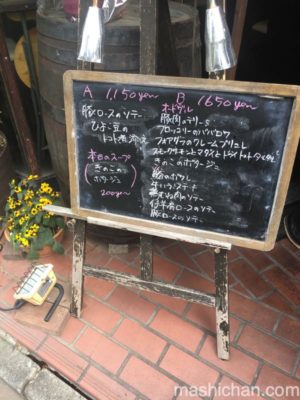 A 1150yen
豚ロースのソテー
ひよこ豆の
トマト煮添え
本日のスープ
きのこの
ポタージュ
200yen
B 1650yen
オードブル
豚肉のテリーヌ
ブロッコリーのババロワ
フォアグラのクレームブリュレ
スモークサーモンとマダイとドライトマトの
きのこのポタージュ
豚のポワレ
牛ハラミステーキ
仔羊肩ロースのソテー
豚ロースのソテー
mashichan.com